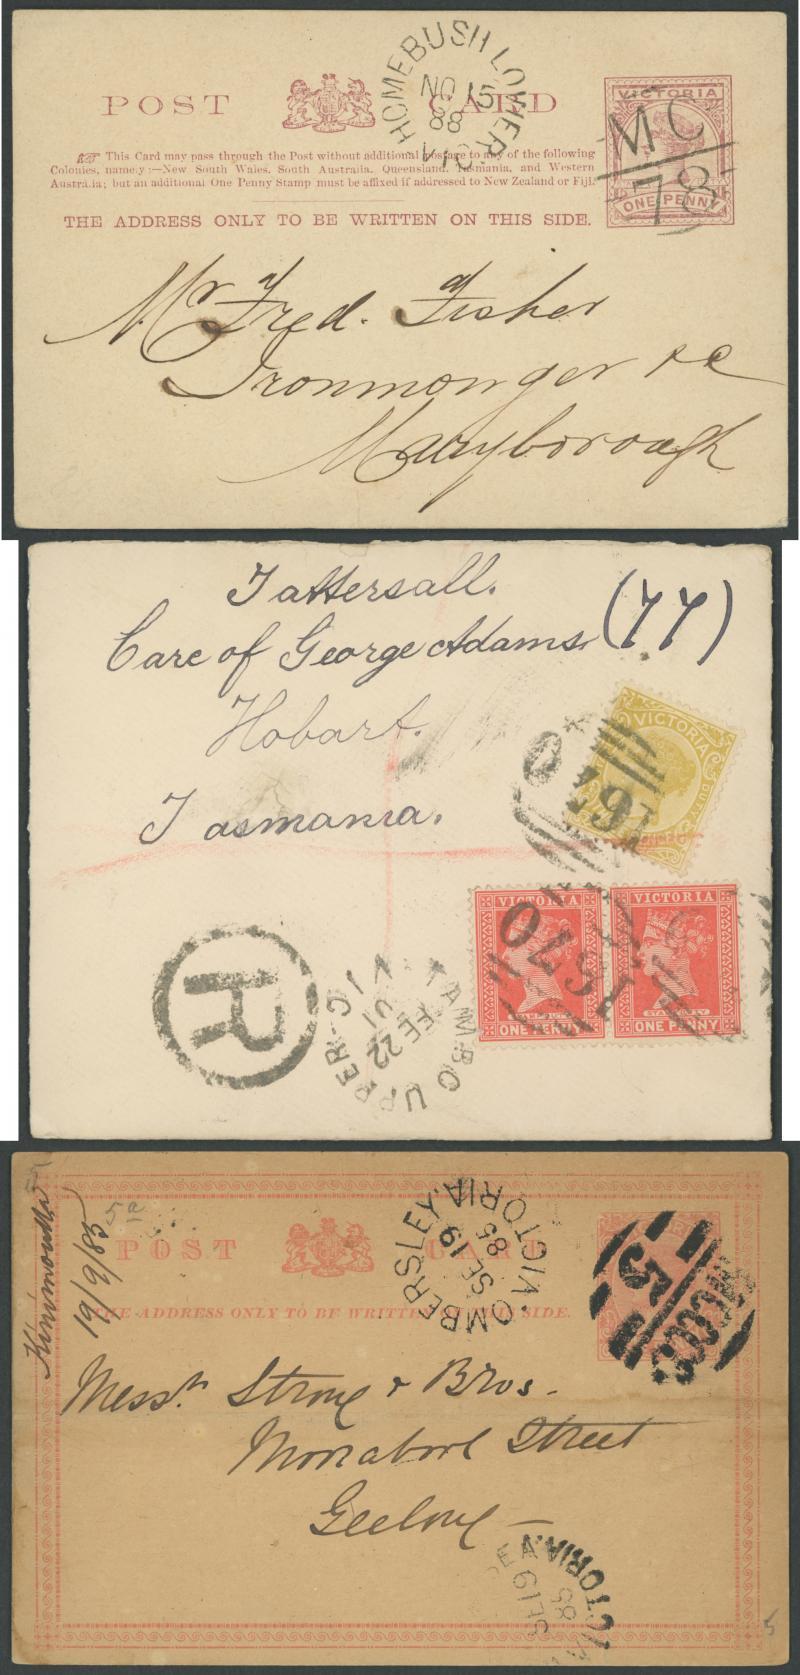 HOMEBUSH LOWER
NO 15
88
VIC
POST CARD
VICTORIA
ONE PENNY
MC
78
This Card may pass through the Post without additional postage to any of the following
Colonies, namely:—New South Wales, South Australia, Queensland, Tasmania, and Western
Australia; but an additional One Penny Stamp must be affixed if addressed to New Zealand or Fiji.
THE ADDRESS ONLY TO BE WRITTEN ON THIS SIDE.
Mr Fred. Fisher
Ironmonger &c
Maryborough
Tattersall.
(77)
Care of George Adams.
Hobart.
Tasmania.
VICTORIA
VICTORIA VICTORIA
1570
STAMP DUTY
ONE PENNY ONE PENNY
R
TAMBO UPPER
FE 22
01
VIC
5a
19/9/85
POST CARD
OMBERSLEY
SE 19
85
VICTORIA
THE ADDRESS ONLY TO BE WRITTEN ON THIS SIDE.
Messrs Strong & Bros.
Moorabool Street
Geelong
SE 19
85
VICTORIA
5